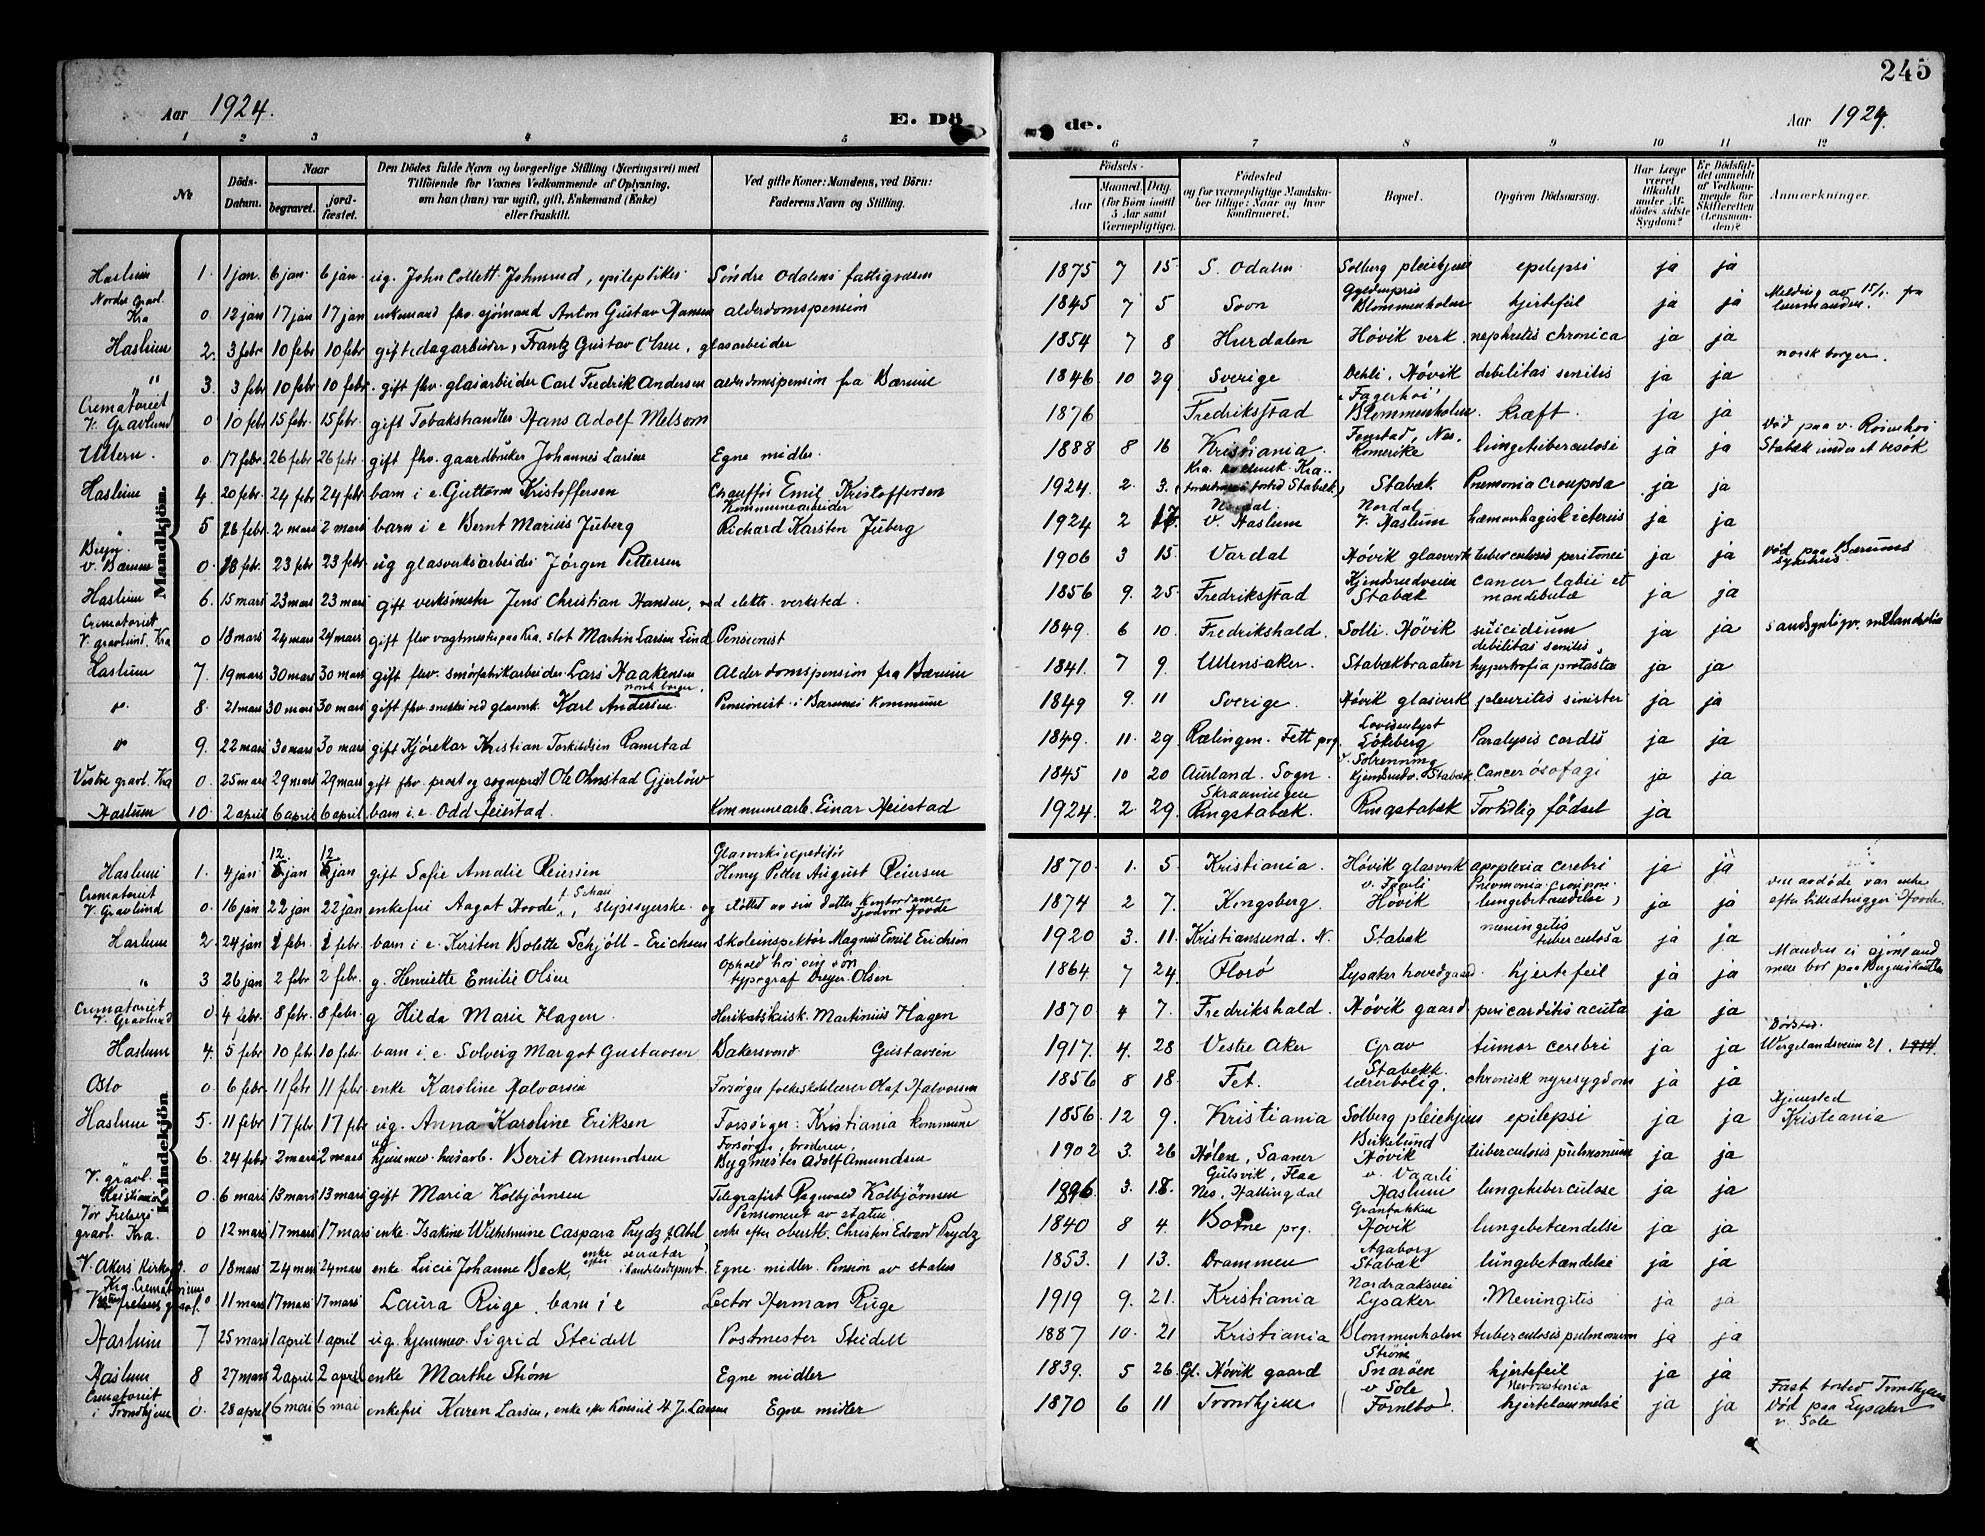 245
Aar 1924. E. Dö de. Aar 1924.
1 2 3 4 5 6 7 8 9 10 11 12
No. Döds-Datum. Naar begravet. jord-fæstet. Den Dödes fulde Navn og borgerlige Stilling (Næringsvei) med Tilföiende for Voxnes Vedkommende af Oplysning, om han (hun) var ugift, gift, Enkemand (Enke) eller fraskilt. Ved gifte Koner: Mandens, ved Børn: Faderens Navn og Stilling. Födsels- Aar Maaned. Dag. (for Börn indtil 5 Aar samt Værnepligtige). Födested og for værnepligtige Mandskaber tillige: Naar og hvor konfirmeret. Bopæl. Opgiven Dödsaarsag. Har Læge været tilkaldt under Afdödes sidste Sygdom? Er Dödsfaldet anmeldt af Vedkommende for Skifteretten (Lensmanden)? Anmærkninger.
Mandkjön.
Haslum 1. 1 jan. 6 jan 6 jan ug. John Collett Johnsrud, epileptiker Söndre Odalens fattigvæsen 1875 7 15. S. Odalen Solberg pleiehjem epilepsi ja ja
Nordre Gravl. Kra 0 12 jan 17 jan 17 jan enkemand fhv. sjömand Anton Gustav Hansen alderdomspension 1845 7 5 Sovn Blommenholm hjertefeil ja ja Melding av 15/1 fra lensmanden.
Haslum 2. 3 febr 10 febr 10 febr gift dagarbeider, Frantz Gustav Olsen, glasarbeider 1854 7 8 Hurdalen Hövik verk nephritis chronica ja ja
" 3. 3 febr 10 febr 10 febr. gift fhv. glasarbeider Carl Fredrik Andersen alderdomspension fra Bærum 1846 10 29 Sverige Dehli, Hövik debilitas senilis ja ja norsk borger.
Crematoriet V. Gravlund 0 10 febr 15 febr. 15 febr. gift Tobakshandler Hans Adolf Melsom 1876 Fredriksstad "Fagerhöi" Blommenholm kræft. ja ja
Ullern. 0 17 febr. 26 febr 26 febr gift fhv. gaardbruker Johannes Larsen Egne midler. 1888 8 16 Kristiania Fonstad, Nes, Romerike lungetuberculose ja ja Död paa v. Stabæk under et besök
Haslum 4. 20 febr. 24 febr 24 febr barn i e. Guttorm Kristoffersen Chauffør Emil Kristoffersen 1924. 2. 3. Stabæk Pnemonia Crouposa ja ja
" 5 26 febr. 2 mars 2 mars barn i e Bernt Marius Juberg Kommunearbeider Richard Karsten Juberg 1924 2 17. Nordal, v. Haslum Nordal v. Haslum hæmorhagisk icterus ja ja
Bryn v. Bærum 0. 18 febr. 23 febr 23 febr. ug glasverksarbeider Jörgen Pettersen 1906 3 15. Vardal Hövik glasverk tuberculosis peritonei ja ja Död paa Bærums sykehus.
Haslum 6. 15 mars 23 mars 23 mars gift verksmester Jens Christian Hansen, ved elektr. verksted. 1856 9. 25. Fredriksstad Kjendsrudveien Stabæk cancer labii et mandibulæ ja ja
Crematoriet V. gravlund. Kra 0 18 mars 24 mars 24 mars gift fhv vagtmester paa Kra. slot Martin Larsen Lind Pensionist 1849. 6 10. Fredrikshald. Solli. Hövik suicidium ja ja sandsynligv. melankolia
Haslum 7. 19 mars 30 mars 30 mars gift fhv. smörfabrikarbeider Lars Haakensen Alderdomspension fra Bærum 1841. 7 9. Ullensaker. Stabækbraaten debilitas senilis, hypertrofia protasta ja ja
" 8. 21 mars 30 mars 30 mars gift fhv. snekker ved glasverk. Karl Andersen. norsk borger, Pensionist i Bærums kommune 1849 9. 11 Sverige. Hövik glasverk pleuritis sinister ja ja
" 9. 22 mars 30 mars 30 mars gift Kjörekar Kristian Torkildsen Ramstad 1849. 11. 29 Rælingen. Fett prg. Lovisenlyst Lökeberg Paralysis cordis ja ja
Vestre gravl. Kra 0. 25 mars 29 mars 29 mars gift fhv. prost og sogneprest Ole Ohnstad Gjerlöw 1845 10 20 Aurland. Sogn v. Solrenning Kjendsrudv. Stabæk. Cancer ösofagi ja ja
Haslum 10. 2 april 6 april 6 april barn i. e. Odd Heiestad. Kommunearb. Einar Heiestad 1924. 2 29. Skraaningen Ringstabæk. Ringstabæk Fortidlig födsel ja
Kvindekjön
Haslum 1. 4 jan 12 jan 12 jan gift Sofie Amalie Reiersen Glasverksexpeditör Henry Peter August Reiersen 1870. 1. 5 Kristiania. Hövik glasverk apoplexia cerebri ja ja
Crematoriet V. Gravlund 0. 16 jan 22 jan 22 jan enkefru Aagot Hovde, slipssyerske og stöttet av sin datter Kontordame Hovde 1874 2 7. Kongsberg. Hövik Pnevmonia croupos. (lungebetændelse) ja ja den avdöde var enke efter billedhugger Hovde.
Haslum 2. 24 jan febr. febr. barn i. e. Kirsten Bolette Schjöll-Erichsen skoleinspektör Magnus Emil Erichsen 1920 3. 11. Kristiansund. N. Stabæk meningitis tuberculosa ja ja
" 3 26 jan 2 febr 2 febr g. Henriette Emilie Olsen Ophold hos sin sön typograf Dreyer Olsen 1864 7 24. Florö Lysaker hovedgaard. hjertefeil ja ja Manden ei sjömand men bor paa Bergenskanten
Crematoriet V. Gravlund 0. 4 febr. 8 febr. 8 febr. g Hilda Marie Hagen. Herikabskusk. Martinius Hagen 1870 4 7. Fredrikshald. Hövik gaard pericarditis acuta ja ja
Haslum 4. 5 febr 10 febr 10 febr. barn i. e. Solveig Margot Gustavsen Bakersvend Gustavsen 1917. 4. 28 Vestre Aker Grav tumor cerebri ja ja Dödsted. Wergelandsveien 21.
Oslo 0. 6 febr. 11 febr 11 febr enke Karoline Halvorsen Forsörger folkeskolelærer Olaf Halvorsen 1856 8 18. Fet. Stabekk lærerbolig. chronisk nyresygdom ja ja
Haslum 5. 11 febr 17 febr 17 febr ug. Anna Karoline Eriksen Forsörger: Kristiania kommune 1856. 12 9. Kristiania Solberg pleiehjem epilepsi ja ja Hjemsted Kristiania
6. 24 febr. 2 mars 2 mars ug hjemmev. husarb. Berit Amundsen Forsörger, broderen, Bygmester Adolf Amundsen 1902 3. 26 Hölen, Saaner Birkelund Hövik tuberculosis pulmonum ja ja
V. gravl. Kristiania 0. 6 mars 13 mars 13 mars gift Maria Kolbjörnsen Telegrafist Ragnvald Kolbjörnsen 1896. 3. 18. Gulsvik, Flaa Nes, Hallingdal v. Vaarli Haslum lungetuberculose ja ja
Vor Frelsers gravl. Kra. 0 12 mars 17 mars 17 mars enke Isakine Wilhelmine Caspara Prydz f. Abel Pensioneret av staten enke efter oberstl. Christen Edvard Prydz 1840 8 4. Botne prg. Granbakken Hövik lungebetændelse ja ja
V. Akers Kirkeg. 0 18 mars 24 mars 24 mars enke Lucie Johanne Beck, enke efter sekretær i handelsdepmt. Egne midler. Pension av staten 1853. 1 13. Drammen Agaborg Stabæk lungebetændelse ja ja
Kra Crematorium Vor frelsers gravl. 0 11 mars 17 mars 17 mars Laura Ruge, barn i e Lector Herman Ruge 1919 9. 21. Kristiania Nordraaksvei Lysaker Meningitis ja ja
Haslum 7 25 mars 1 april 1 april ug. hjemmev. Sigrid Steidell Postmester Steidell 1887 10. 21 Kristiania Blommenholm tuberculosis pulmonum ja ja
Haslum 8 27 mars 2 april 2 april enke Marthe Ström Egne midler 1839. 5 26. Gl. Hövik gaard Ström Snaröen hjertefeil ja ja
Crematoriet i Trondhjem 0. 28 april 6 mai 6 mai enkefru Karen Larsen, enke efter Konsul H. J. Larsen Egne midler 1870 6 11 Trondhjem v. Sole (Fornebo). Nevrastenia hjertelammelse ja ja Fast bosted Trondhjem Död paa Lysaker v. Sole